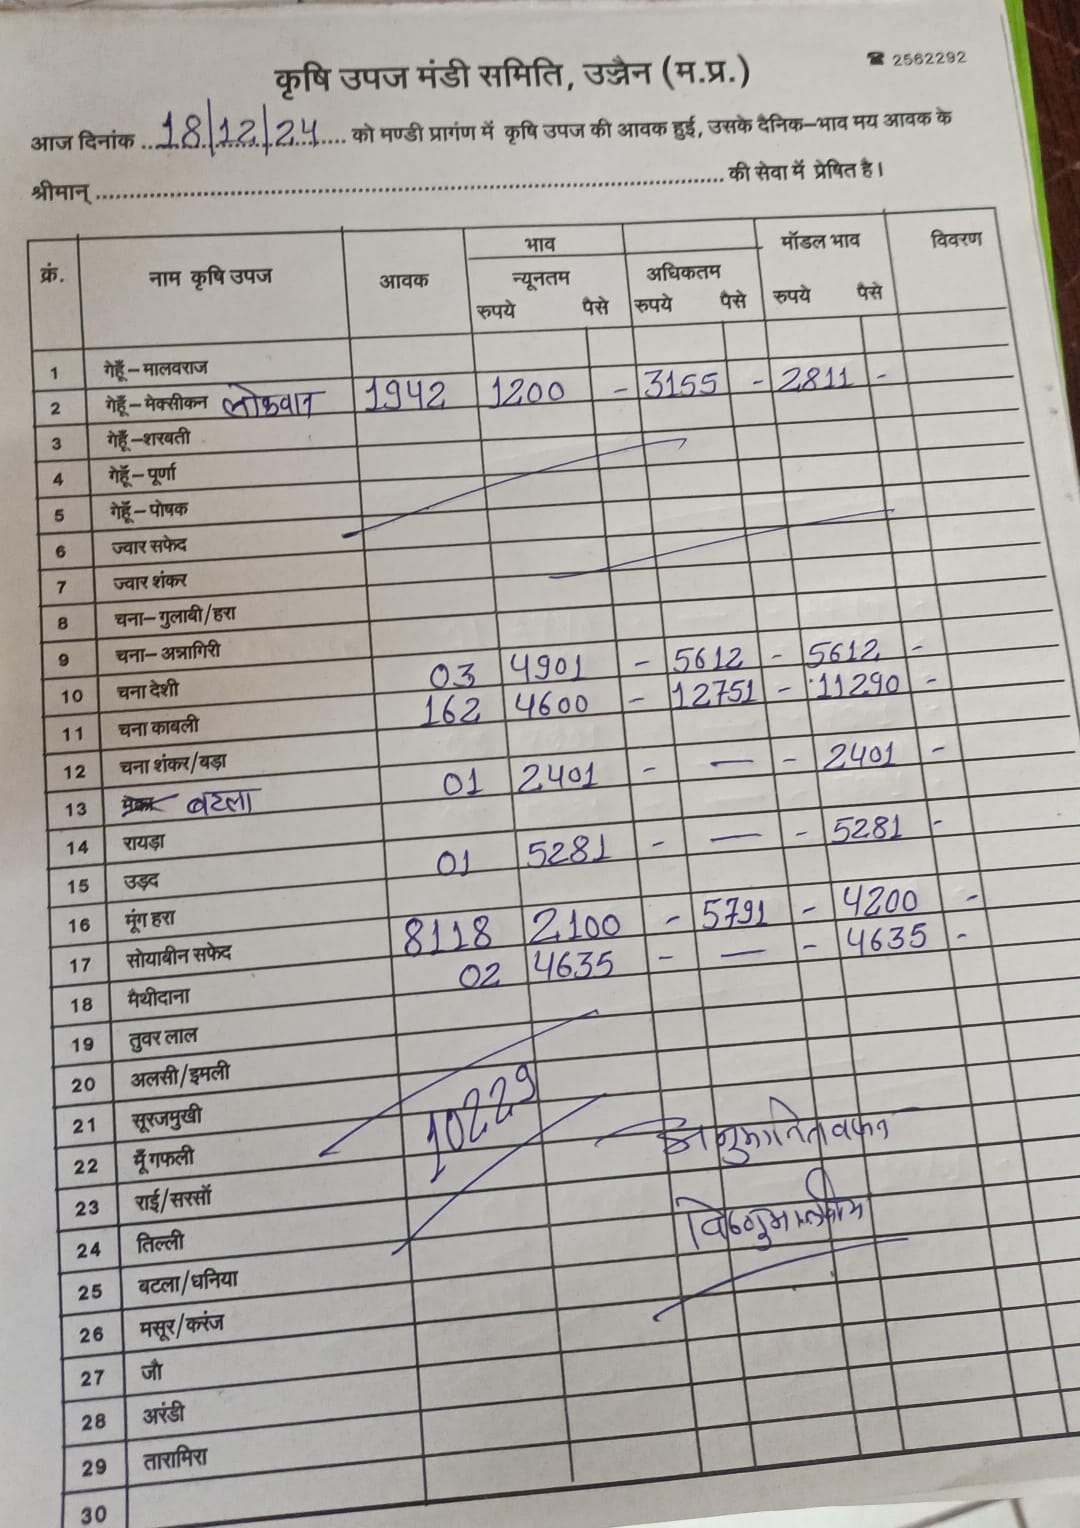 ☎ 2562292
कृषि उपज मंडी समिति, उज्जैन (म.प्र.)
आज दिनांक 18/12/24 को मण्डी प्रागंण में कृषि उपज की आवक हुई, उसके दैनिक-भाव मय आवक के
श्रीमान् की सेवा में प्रेषित है।
क्रं. नाम कृषि उपज आवक भाव मॉडल भाव विवरण
न्यूनतम अधिकतम
रुपये पैसे रुपये पैसे रुपये पैसे
1 गेहूँ-मालवराज
2 गेहूँ-मेक्सीकन लोकवान 1942 1200 - 3155 - 2811 -
3 गेहूँ-शरबती
4 गेहूँ-पूर्णा
5 गेहूँ-पोषक
6 ज्वार सफेद
7 ज्वार शंकर
8 चना-गुलाबी/हरा
9 चना-अन्नागिरी
10 चना देशी 03 4901 - 5612 - 5612 -
11 चना काबली 162 4600 - 12751 - 11290 -
12 चना शंकर/बड़ा
13 बटला 01 2401 - — - 2401 -
14 रायड़ा
15 उड़द 01 5281 - — - 5281 -
16 मूंग हरा
17 सोयाबीन सफेद 8118 2100 - 5791 - 4200 -
18 मैथीदाना 02 4635 - — - 4635 -
19 तुवर लाल
20 अलसी/इमली
21 सूरजमुखी
22 मूँगफली
23 राई/सरसों
24 तिल्ली
25 बटला/धनिया
26 मसूर/करंज
27 जौ
28 अरंडी
29 तारामिरा
30
10229